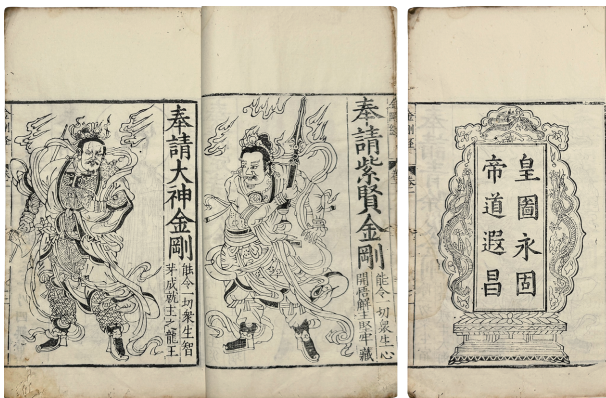 皇圖永固
帝道遐昌
金剛經
奉請紫賢金剛
能令一切衆生心
開悟解主堅牢藏
奉請大神金剛
能令一切衆生智
芽成就主之龍王